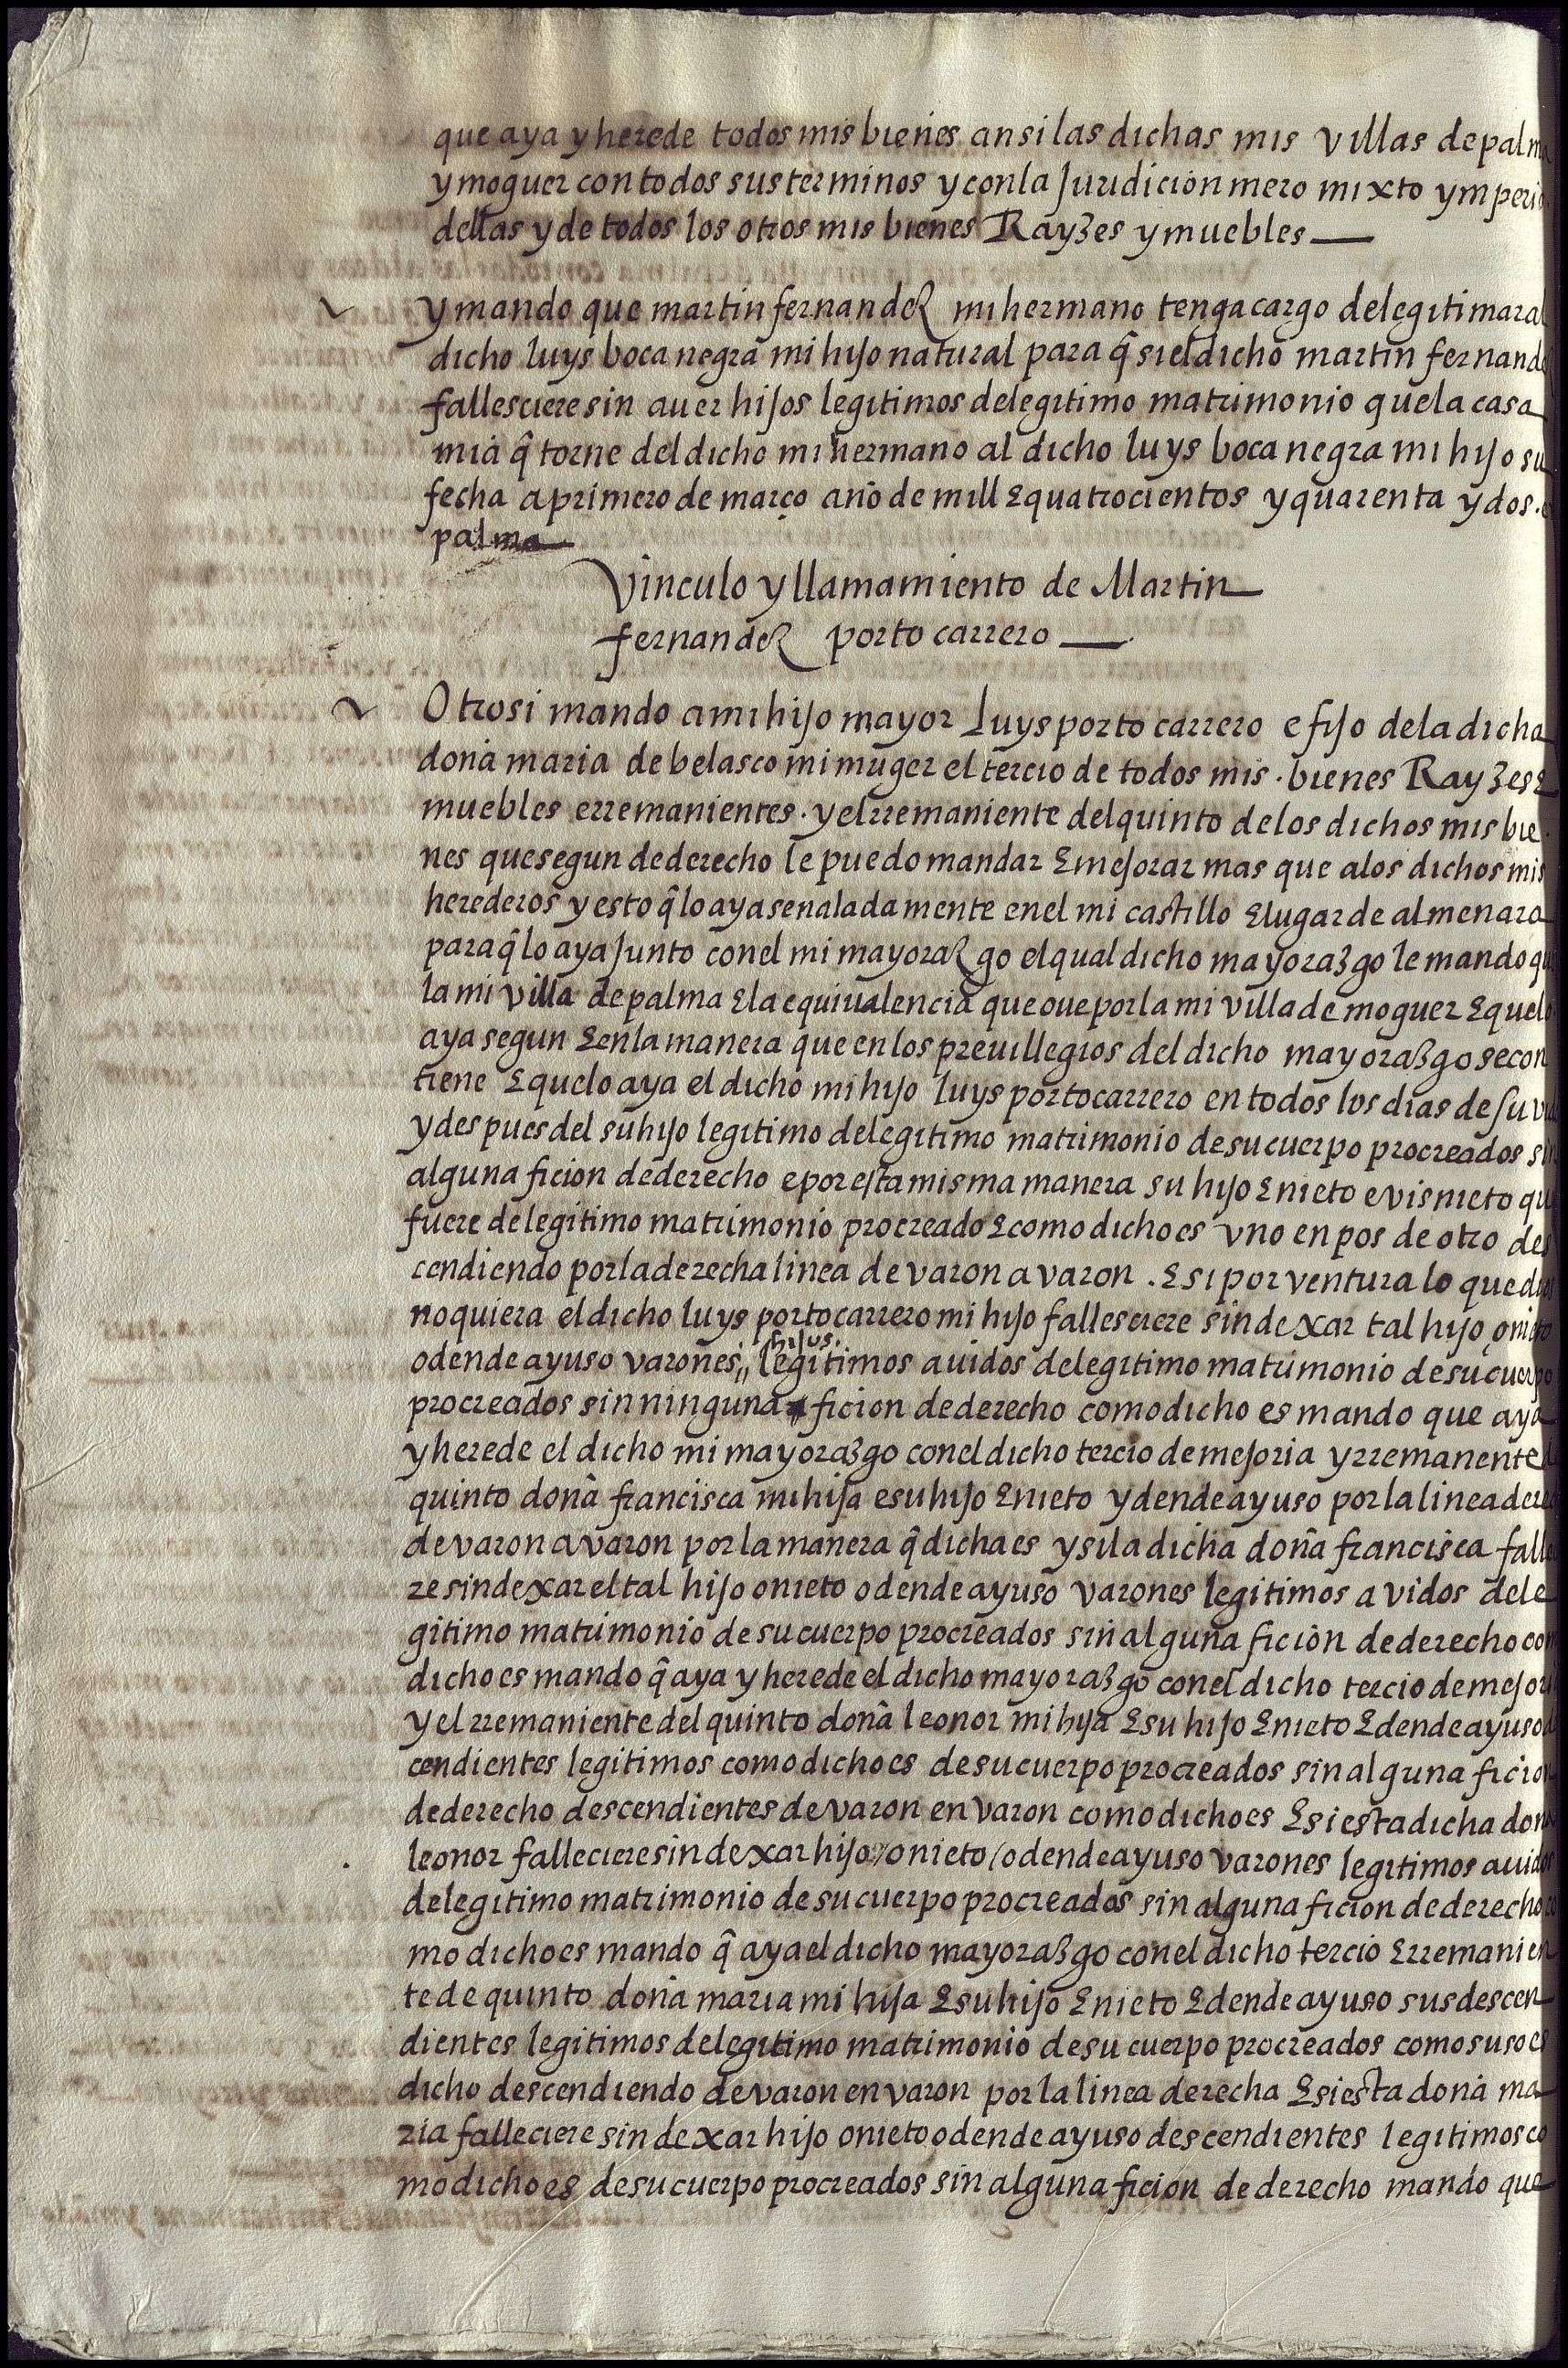 que aya y herede todos mis bienes ansi las dichas mis villas de palma
y moguer con todos sus terminos y con la Juridicion mero mixto ymperio
dellas y de todos los otros mis bienes Rayzes y muebles
y mando que martin fernandez mi hermano tenga cargo de legitimar al
dicho luys boca negra mi hijo natural para q̃ si el dicho martin fernande
fallesciere sin auer hijos legitimos de legitimo matrimonio que la casa
mia q̃ torne del dicho mi hermano al dicho luys boca negra mi hijo su
fecha a primero de março año de mill E quatrocientos y quarenta y dos.
palma
Vinculo y llamamiento de Martin
fernandez porto carrero
Otrosi mando a mi hijo mayor Luys porto carrero e fijo de la dicha
doña maria de belasco mi muger el tercio de todos mis. bienes Rayzes E
muebles e rremanientes. y el rremaniente del quinto de los dichos mis bie
nes que segun de derecho le puedo mandar E mejorar mas que a los dichos mis
herederos y esto q̃ lo aya señaladamente en el mi castillo E lugar de almenara
para q̃ lo aya Junto con el mi mayorazgo el qual dicho mayorazgo le mando qu
la mi villa de palma E la equiualencia que oue por la mi villa de moguer E quelo
aya segun E en la manera que en los preuillegios del dicho mayorazgo se con
tiene E que lo aya el dicho mi hijo luys portocarrero en todos los dias de su vi
y despues del su hijo legitimo de legitimo matrimonio de su cuerpo procreados sin
alguna ficion de derecho e por esta misma manera su hijo E nieto e visnieto qu
fuere de legitimo matrimonio procreado E como dicho es vno en pos de otro des
cendiendo por la derecha linea de varon a varon. E si por ventura lo que dios
no quiera el dicho luys portocarrero mi hijo fallesciere sin dexar tal hijo o nieto
o dende ayuso varones,, hijos. legitimos auidos de legitimo matrimonio de su cuerpo
procreados sin ninguna ficion de derecho como dicho es mando que aya
y herede el dicho mi mayorazgo con el dicho tercio de mejoria y rremanente d
quinto doña francisca mi hija e su hijo E nieto y dende ayuso por la linea derec
de varon a varon por la manera q̃ dicha es y si la dicha doña francisca falle
re sin dexar el tal hijo o nieto o dende ayuso varones legitimos avidos de le
gitimo matrimonio de su cuerpo procreados sin alguna ficion de derecho com
dicho es mando q̃ aya y herede el dicho mayorazgo con el dicho tercio de mejori
y el rremaniente del quinto doña leonor mi hija E su hijo E nieto E dende ayuso
cendientes legitimos como dicho es de su cuerpo procreados sin alguna ficion
de derecho descendientes de varon en varon como dicho es E si esta dicha doña
leonor falleciere sin dexar hijo / o nieto / o dende ayuso varones legitimos auidos
de legitimo matrimonio de su cuerpo procreados sin alguna ficion de derecho co
mo dicho es mando q̃ aya el dicho mayorazgo con el dicho tercio E rremanien
te de quinto doña maria mi hija E su hijo E nieto E dende ayuso sus descen
dientes legitimos de legitimo matrimonio de su cuerpo procreados como suso es
dicho descendiendo de varon en varon por la linea derecha E si esta doña ma
ria falleciere sin dexar hijo o nieto o dende ayuso descendientes legitimos co
mo dicho es de su cuerpo procreados sin alguna ficion de derecho mando que